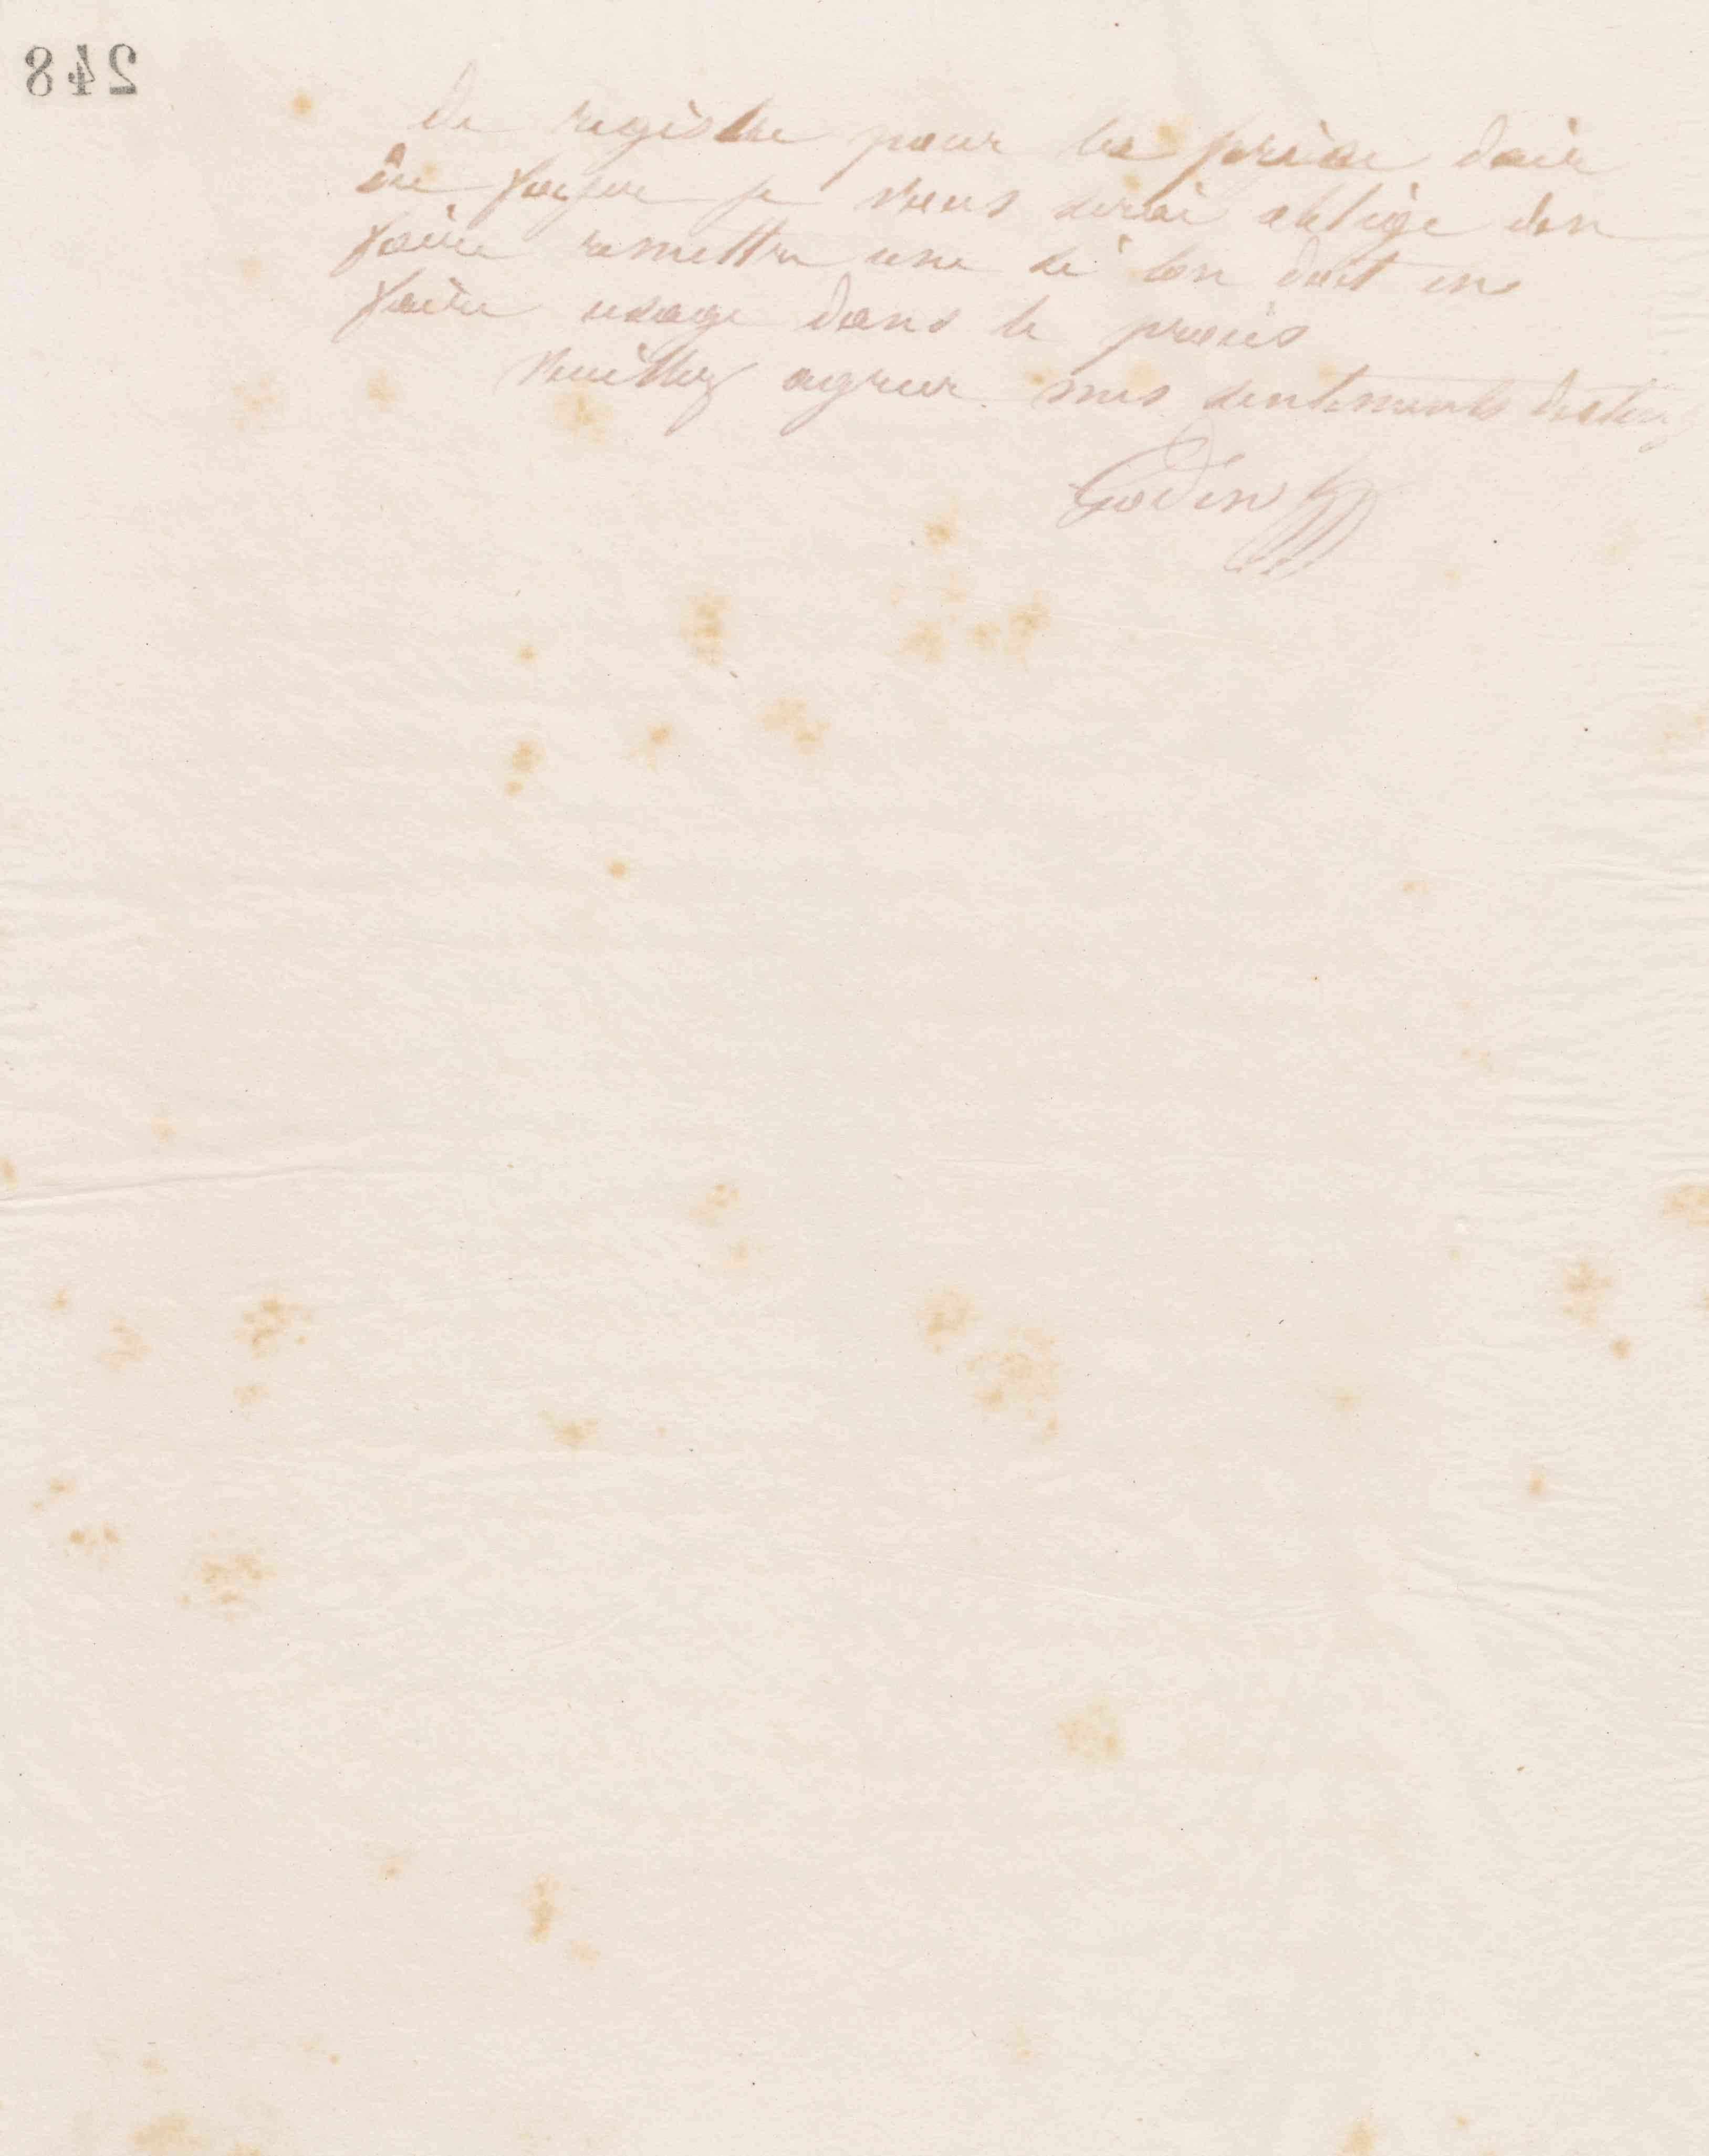 248
de registre pour les prise dair
du foyer je vous serai obligé den
faire remettre une si lon doit en
faire usage dans le procès
Veuillez agreer mes sentiments
Godin